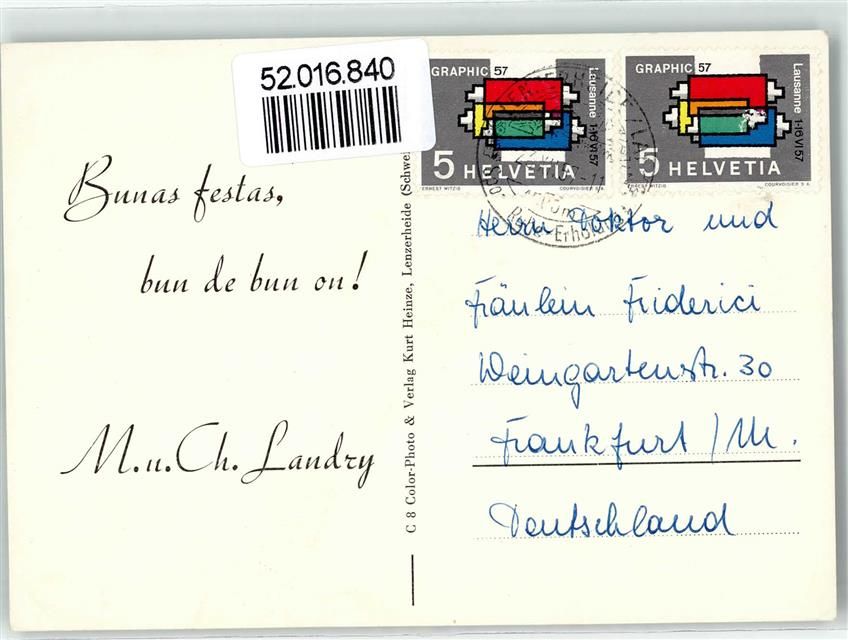 52.016.840
GRAPHIC 57
Lausanne 1-16 VI 57
5 HELVETIA
ERNEST WITZIG COURVOISIER S.A.
GRAPHIC 57
Lausanne 1-16 VI 57
5 HELVETIA
ERNEST WITZIG COURVOISIER S.A.
Bunas festas,
bun de bun on!
M. u. Ch. Landry
C 8 Color-Photo & Verlag Kurt Heinze, Lenzerheide (Schwei
Herrn Doktor und
Fräulein Friderici
Weingartenstr. 30
Frankfurt / M.
Deutschland